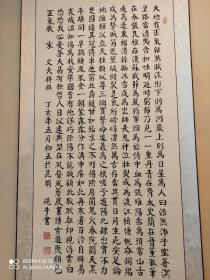 天地有正氣雜然賦流形下則為河嶽上則為日星於人曰浩然沛乎塞蒼溟
皇路當清夷含和吐明庭時窮節乃見一一垂丹青在齊太史簡在晉董狐筆
在秦張良椎在漢蘇武節為嚴將軍頭為嵇侍中血為張睢陽齒為顏常山舌
或為遼東帽清操厲冰雪或為出師表鬼神泣壯烈或為渡江楫慷慨吞胡羯
或為擊賊笏逆豎頭破裂是氣所磅礴凜烈萬古存當其貫日月生死安足論
地維賴以立天柱賴以尊三綱實繫命道義為之根嗟予遘陽九隸也實不力
楚囚纓其冠傳車送窮北鼎鑊甘如飴求之不可得陰房闃鬼火春院閟天黑
牛驥同一皂雞棲鳳凰食一朝蒙霧露分作溝中瘠如此再寒暑百沴自辟易
哀哉沮洳場為我安樂國豈有他繆巧陰陽不能賊顧此耿耿在仰視浮雲白
悠悠我心悲蒼天曷有極哲人日已遠典刑在夙昔風簷展書讀古道照顏色
正氣歌 宋 文天祥 丁亥年五月初五於昆明 書